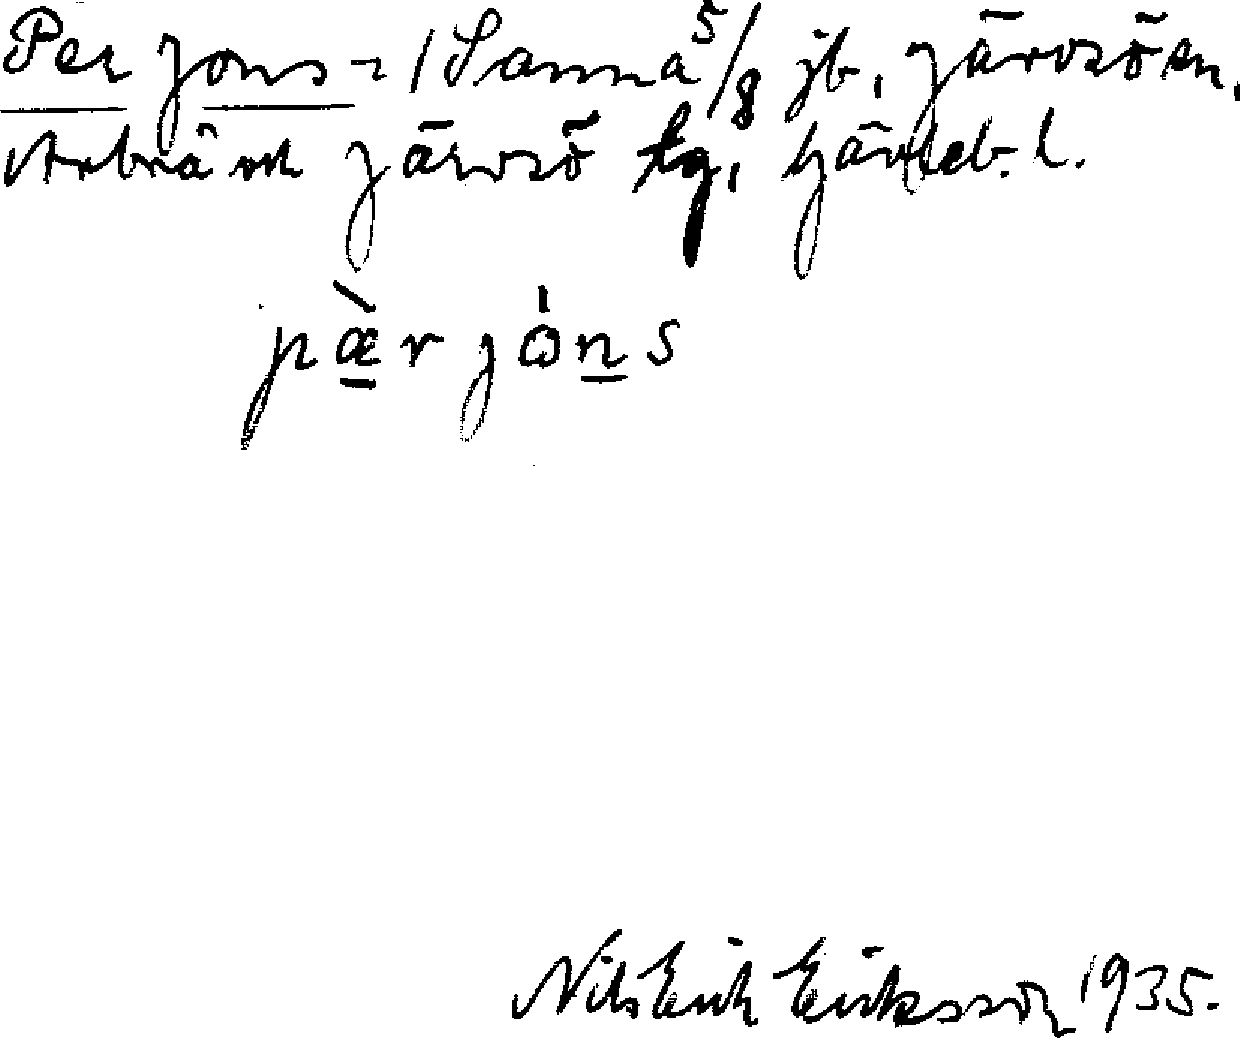 Per Jons = / Sanna 5/8 jb., Järvsö sn,
Arbrå och Järvsö tg, Gävleb. l.
pæ̀r jóns
Nils Erik Eriksson 1935.